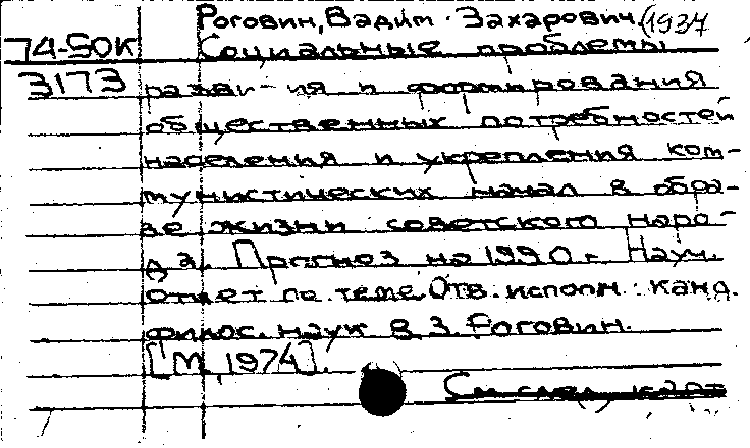 Роговин, Вадим Захарович (1937
74-50К Социальные проблемы
3173 разви-ия и формирования
общественных потребностей
населения и укрепления ком-
мунистических начал в обра-
зе жизни советского наро-
да. Прогноз на 1990 г. Науч.
отчет по теме. Отв. исполн.: канд.
филос. наук В. З. Роговин.
[М, 1974].
См след карт